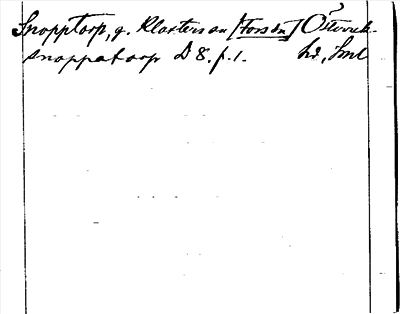 Snopptorp, g. Klosters sn [Tors sn] Östervrek.
snoppatoorp D 8. f. 1. hd, Sml